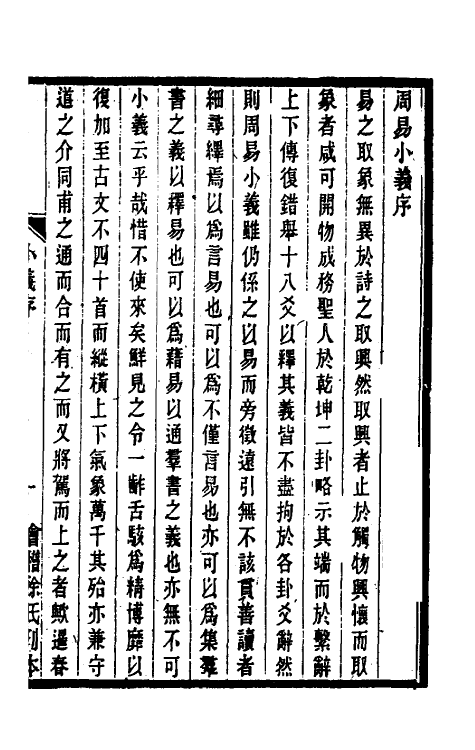 周易小義序
易之取象無異於詩之取興然取興者止於觸物興懷而取
象者咸可開物成務聖人於乾坤二卦略示其端而於繫辭
上下傳復錯舉十八爻以釋其義皆不盡拘於各卦爻辭然
則周易小義雖仍係之以易而旁徵遠引無不該貫善讀者
細尋繹焉以爲言易也可以爲不僅言易也亦可以爲集羣
書之義以釋易也可以爲藉易以通羣書之義也亦無不可
小義云乎哉惜不使來矣鮮見之令一齰舌駭爲精博靡以
復加至古文不四十首而縱橫上下氣象萬千其殆亦兼守
道之介同甫之通而合而有之而又將駕而上之者歟暹春
小義序
一
會稽徐氏刊本